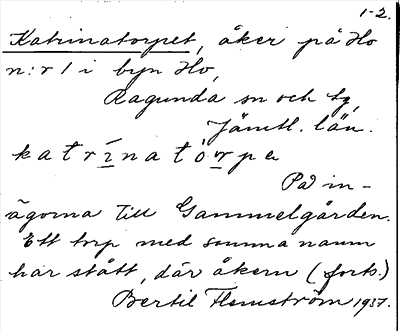 1-2.
Katrinatorpet, åker på Ho
n:r 1 i byn Ho,
Ragunda sn och tg,
Jämtl. län.
katrínatòrpe
På in-
ägorna till Gammelgården.
Ett torp med samma namn
har stått, där åkern (forts.)
Bertil Flemström 1937.